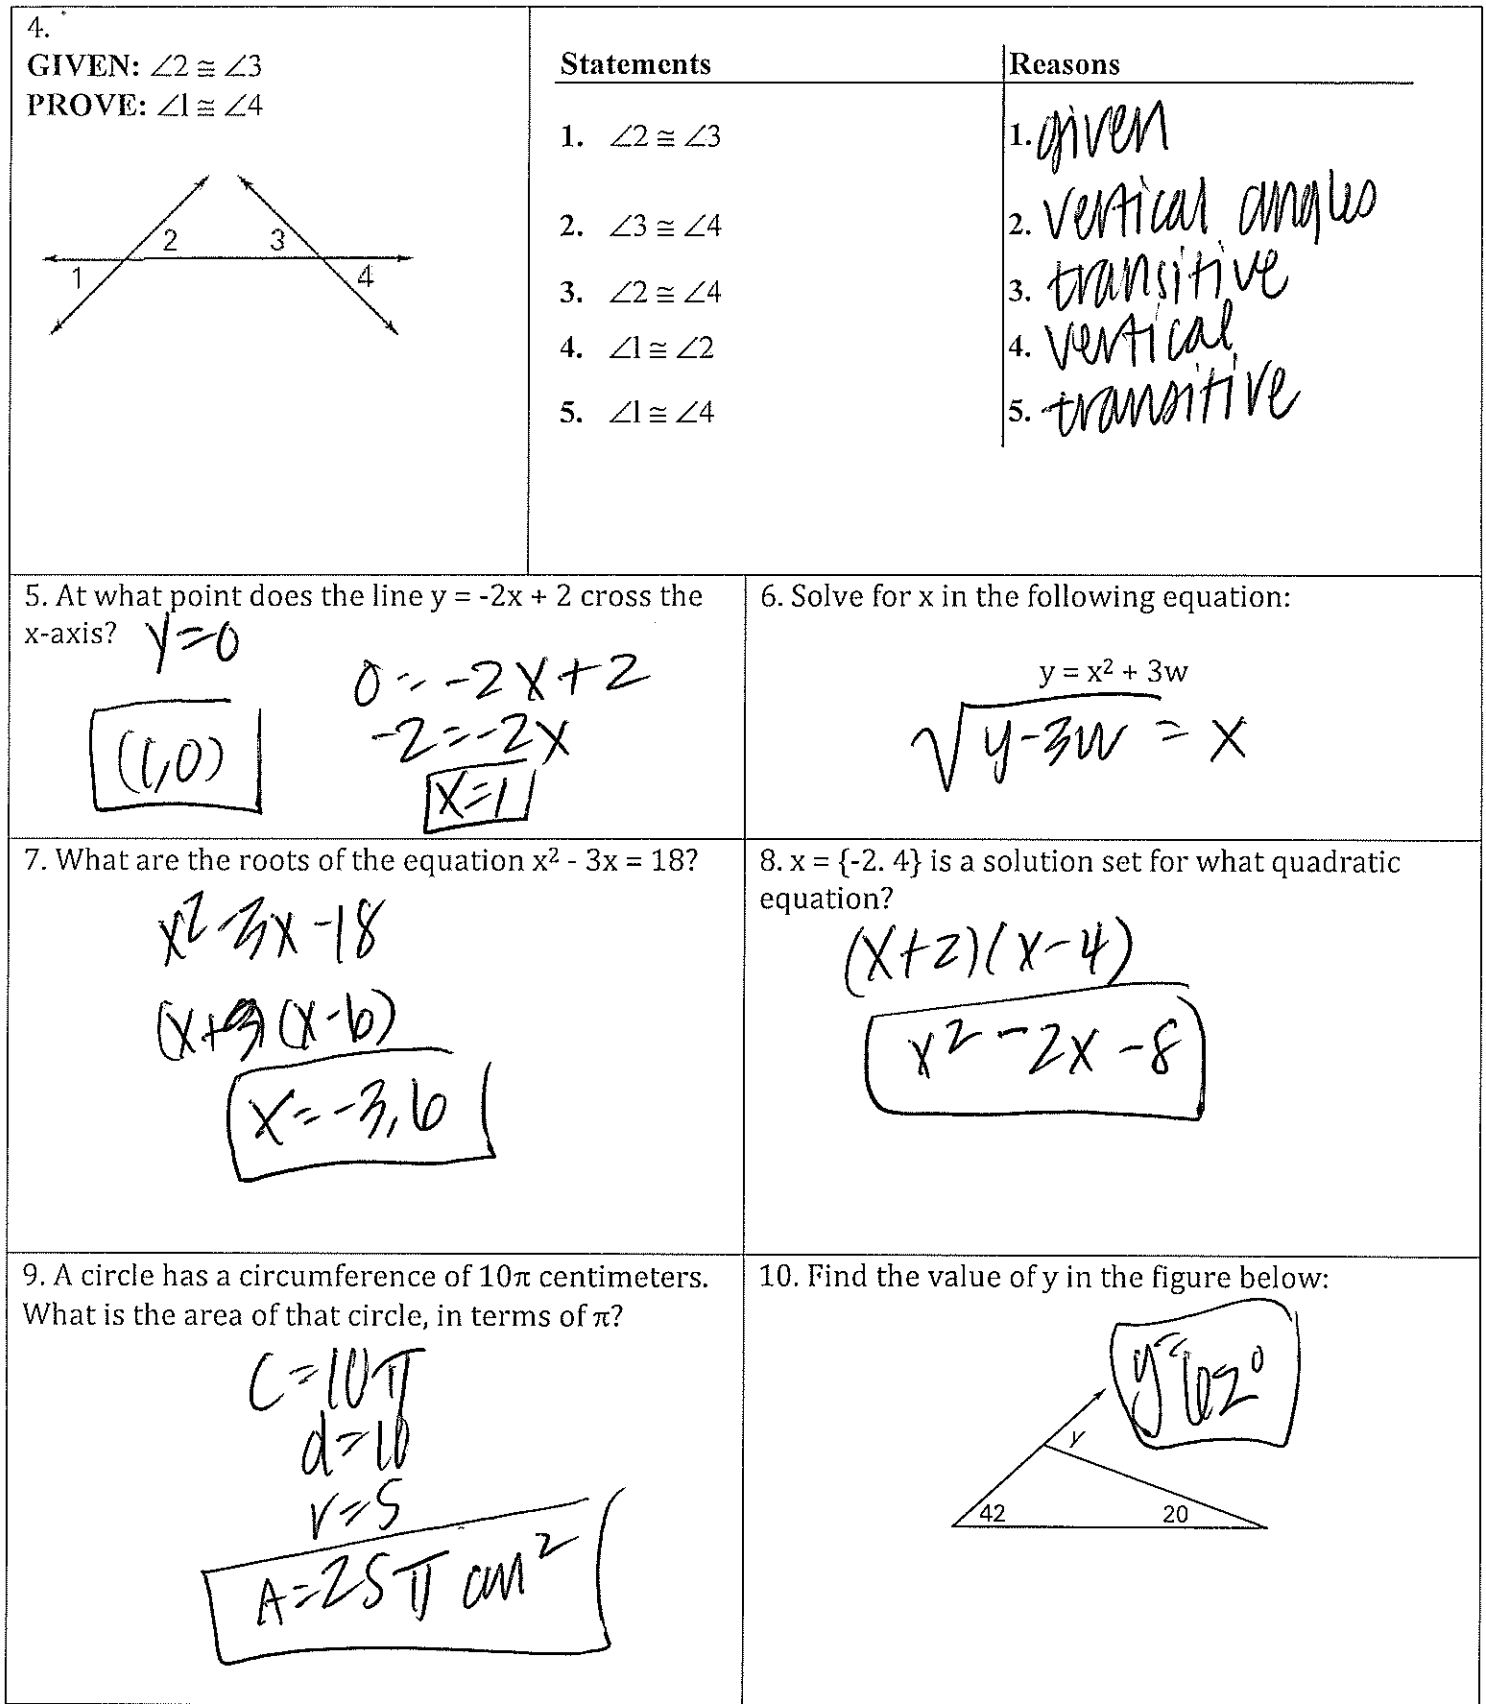 4.
GIVEN: ∠2 ≅ ∠3
PROVE: ∠1 ≅ ∠4
1
2
3
4
Statements
Reasons
1. ∠2 ≅ ∠3
1. given
2. ∠3 ≅ ∠4
2. vertical angles
3. ∠2 ≅ ∠4
3. transitive
4. ∠1 ≅ ∠2
4. vertical
5. ∠1 ≅ ∠4
5. transitive
5. At what point does the line y = -2x + 2 cross the
x-axis? y=0
0 = -2x+2
-2=-2x
x=1
(1,0)
6. Solve for x in the following equation:
y = x² + 3w
√y-3w = x
7. What are the roots of the equation x² - 3x = 18?
x²-3x-18
(x+3)(x-6)
x=-3,6
8. x = {-2. 4} is a solution set for what quadratic
equation?
(x+2)(x-4)
x²-2x-8
9. A circle has a circumference of 10π centimeters.
What is the area of that circle, in terms of π?
C=10π
d=10
r=5
A=25π cm²
10. Find the value of y in the figure below:
y=62°
y
42
20